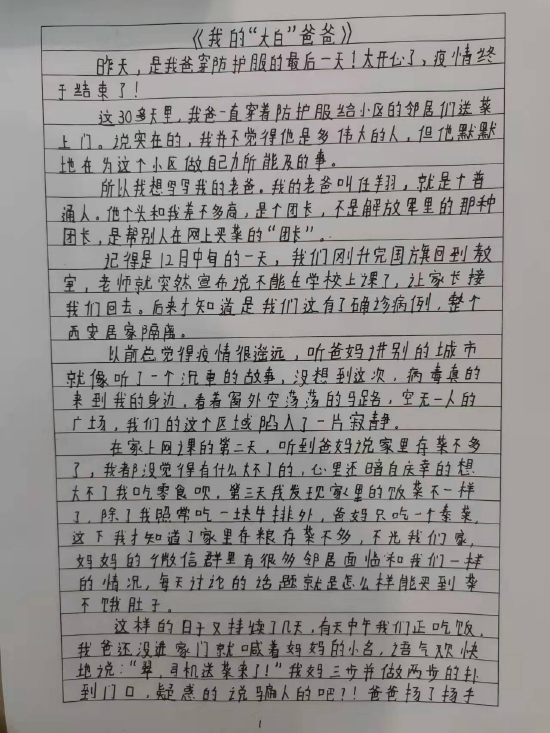 《我的“大白”爸爸》
昨天，是我爸穿防护服的最后一天！太开心了，疫情终
于结束了！
这30多天里，我爸一直穿着防护服给小区的邻居们送菜
上门。说实在的，我并不觉得他是多伟大的人，但他默默
地在为这个小区做自己力所能及的事。
所以我想写写我的老爸。我的老爸叫任羊羽，就是个普
通人。他个头和我差不多高，是个团长，不是解放军里的那种
团长，是帮别人在网上买菜的“团长”。
记得是12月中旬的一天，我们刚升完国旗回到教
室，老师就突然宣布说不能在学校上课了，让家长接
我们回去。后来才知道是我们这有了确诊病例，整个
西安居家隔离。
以前总觉得疫情很遥远，听爸妈讲别的城市
就像听了一个沉重的故事，没想到这次，病毒真的
来到我的身边，看着窗外空荡荡的马路，空无一人的
广场，我们的这个区域陷入了一片寂静。
在家上网课的第二天，听到爸妈说家里存菜不多
了，我都没觉得有什么大不了的，心里还暗自庆幸的想
大不了我吃零食呗，第三天我发现家里的饭菜不一样
了，除了我照常吃一块牛排外，爸妈只吃一个素菜，
这下我才知道了家里存粮存菜不多，不光我们家，
妈妈的微信群里有很多邻居面临和我们一样
的情况，每天讨论的话题就是怎么样能买到菜
不饿肚子。
这样的日子又持续了几天，有天中午我们正吃饭，
我爸还没进家门就喊着妈妈的小名，语气欢快
地说：“翠，司机送菜来了！”我妈三步并做两步的扑
到门口，疑惑的说骗人的吧？！爸爸扬了扬手
1